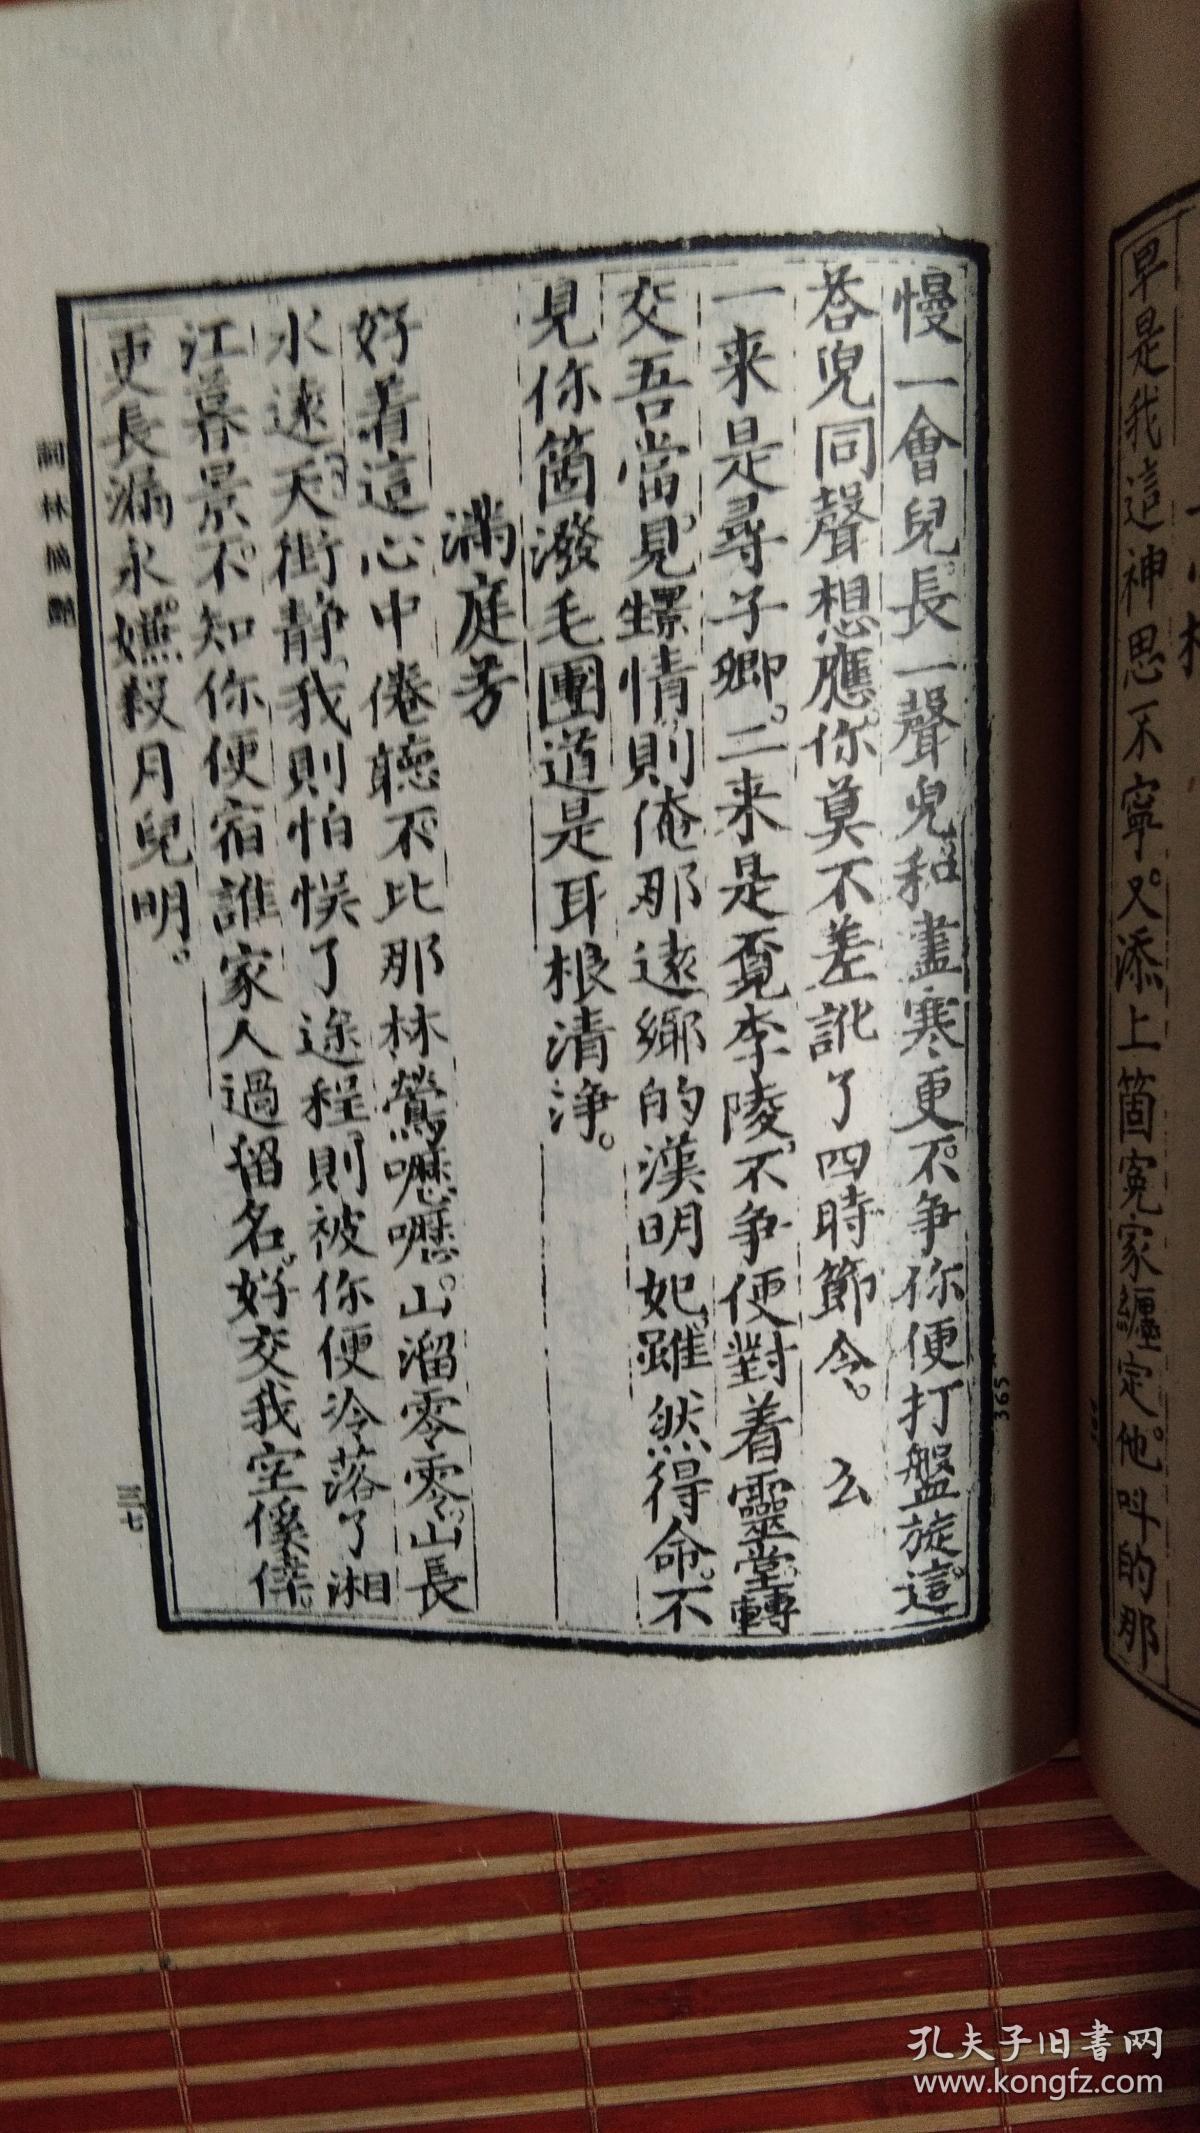 早是我這神思不寧又添上箇寃家纏定他叫的那
慢一會兒長一聲兒和盡寒更不争你便打盤旋這
荅兒同聲想應你莫不差訛了四時節令 么
一来是尋子卿二来是覔李陵不争便對着靈堂轉
交吾當見 情則俺那遠鄉的漢明妃雖然得命不
見你箇潑毛團道是耳根清浄
滿庭芳
好着這心中倦聽不比那林鶯嚦嚦山溜零零山長
水遠天街静我則怕悮了途程則被你便冷落了湘
江暮景不知你便宿誰家人過留名好交我空傒倖
更長漏永嬚殺月兒明
詞林摘艷
三七
365
孔夫子旧书网
www.kongfz.com